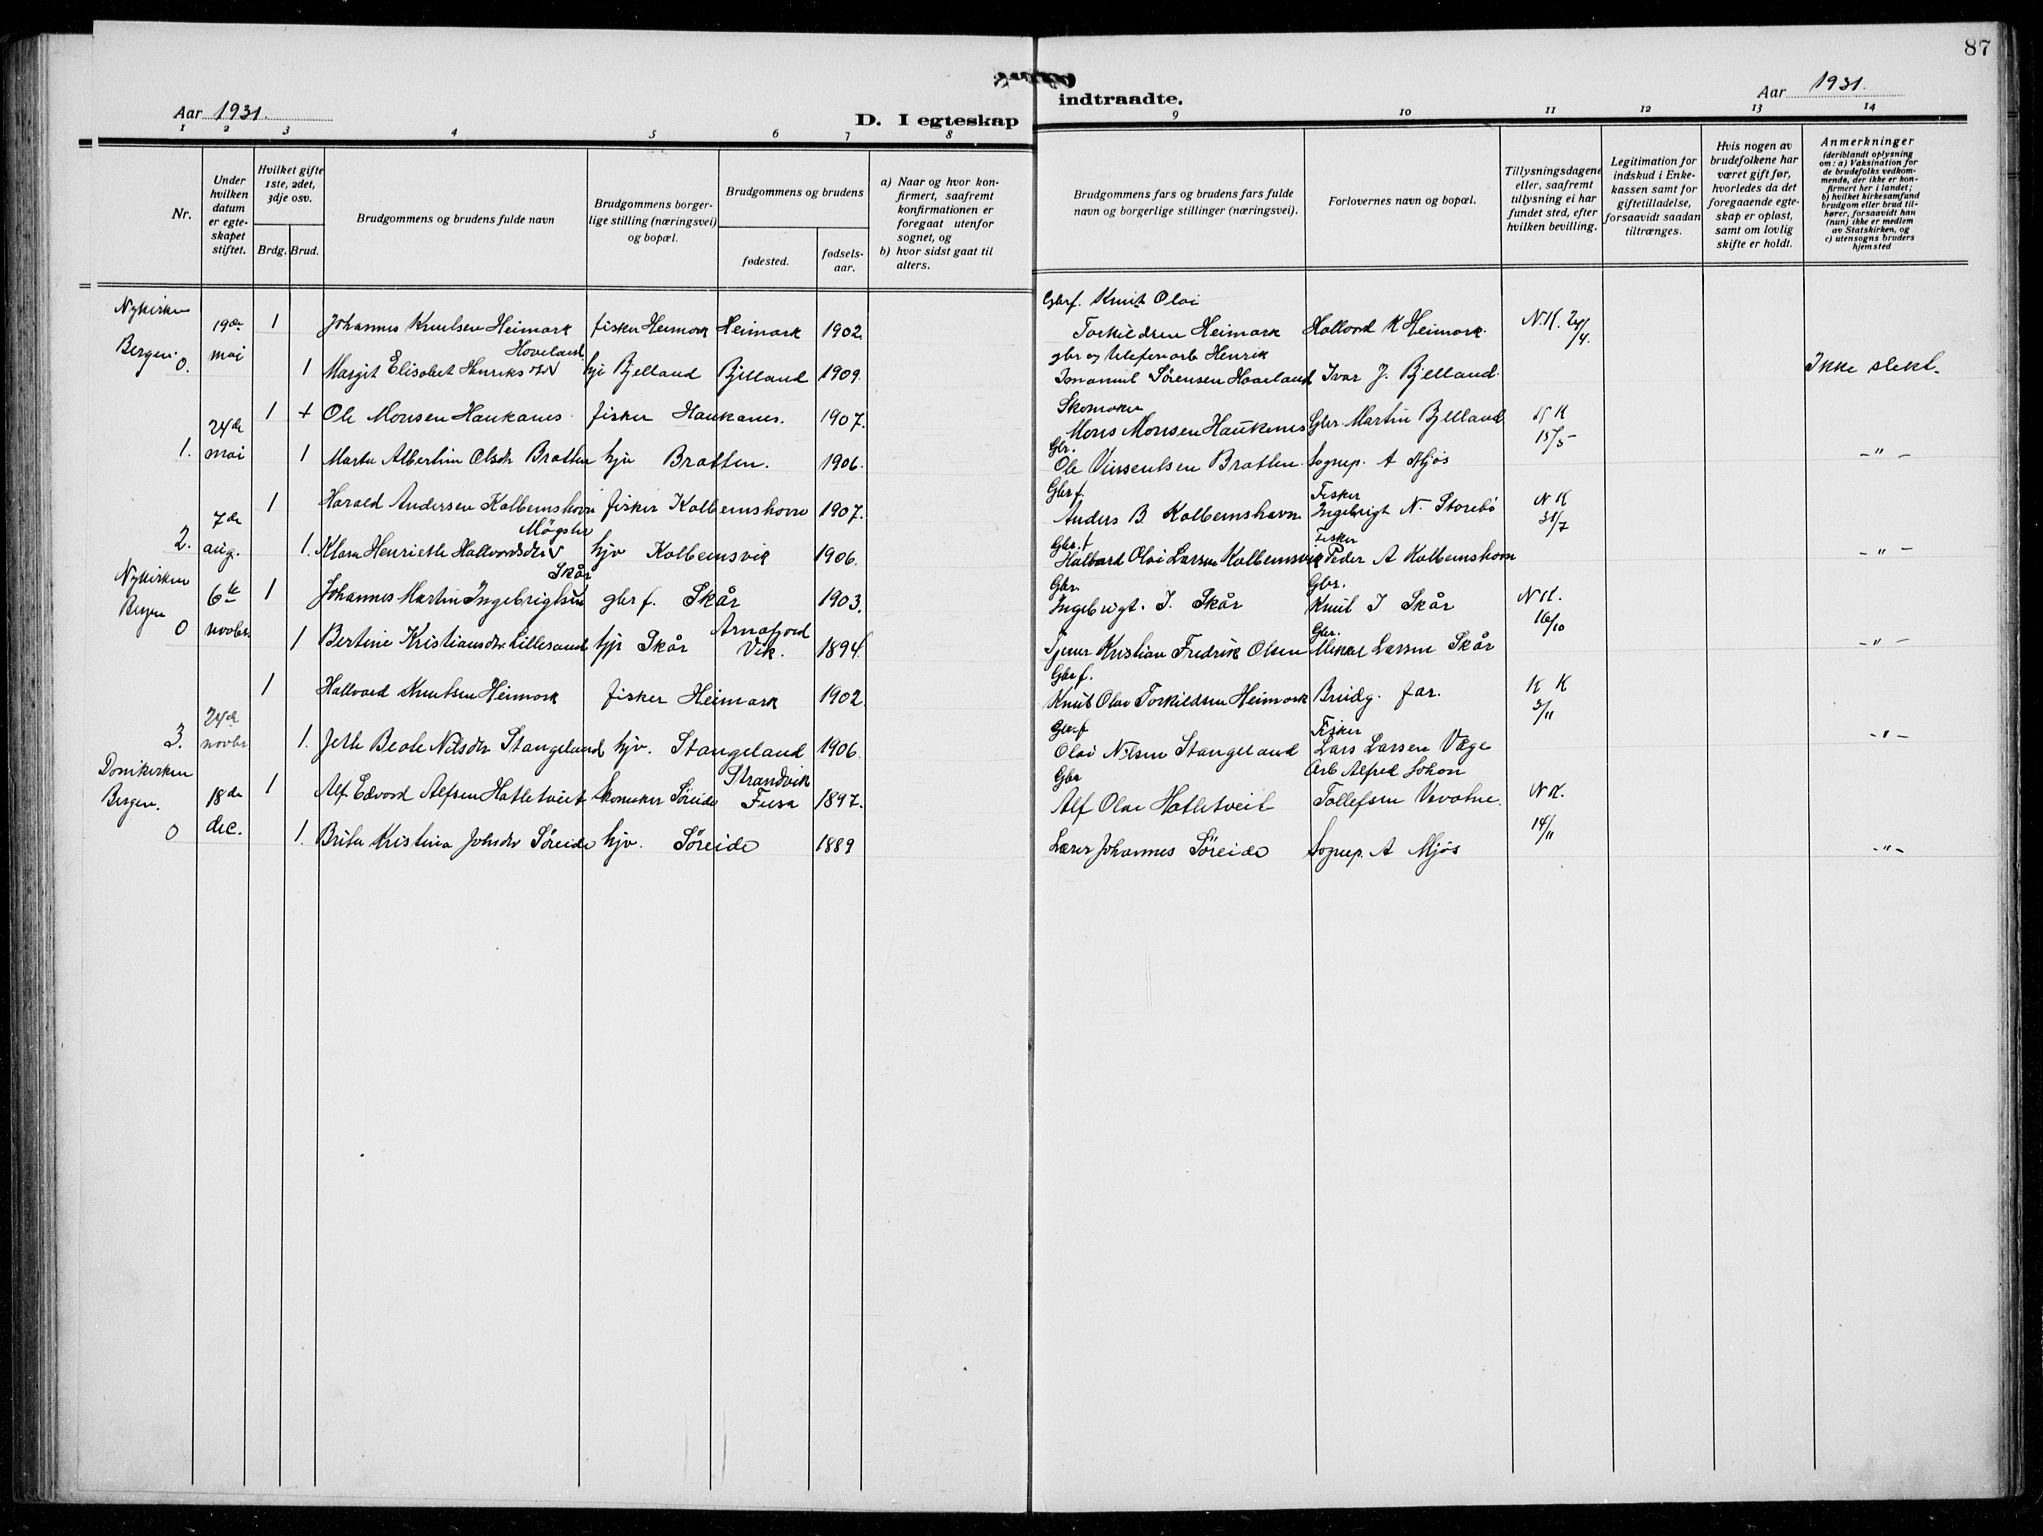 87
Aar 1931.
D. I egteskap
indtraadte.
Aar 1931.
1 2 3 4 5 6 7 8 9 10 11 12 13 14
Nr.
Under hvilken datum er egte-skapet stiftet.
Hvilket gifte 1ste, 2det, 3dje osv.
Brdg. Brud.
Brudgommens og brudens fulde navn
Brudgommens borger-lige stilling (næringsvei) og bopæl.
Brudgommens og brudens
fødested.
fødsels-aar.
a) Naar og hvor kon-firmert, saafremt konfirmationen er foregaat utenfor sognet, og
b) hvor sidst gaat til alters.
Brudgommens fars og brudens fars fulde navn og borgerlige stillinger (næringsvei).
Forlovernes navn og bopæl.
Tillysningsdagene eller, saafremt tillysning ei har fundet sted, efter hvilken bevilling.
Legitimation for indskud i Enke-kassen samt for giftetilladelse, forsaavidt saadan tiltrænges.
Hvis nogen av brudefolkene har været gift før, hvorledes da det foregaaende egte-skap er opløst, samt om lovlig skifte er holdt.
Anmerkninger
(deriblandt oplysning om: a) Vaksination for de brudefolks vedkom-mende, der ikke er kon-firmert her i landet; b) hvilket kirkesamfund brudgom eller brud til-hører, forsaavidt han (hun) ikke er medlem av Statskirken, og c) utensogns bruders hjemsted
Nykirken Bergen 0. 19de mai
1 Johannes Knutsen Heimark fisker Heimark Heimark 1902. Gbrf. Knut Olai Torkildsen Heimark Hallvard K Heimark. N.K. 24/4.
1 Margit Elisabet Henriksdtr Hoveland hjv Bjelland Bjelland 1909. gbr og telefonarb Henrik Imanuel Sørensen Haveland Ivar J. Bjelland. Ikke slekt.
1. 24de mai
1 + Ole Monsen Haukanes. fisker Haukanes. 1907. Skomaker Mons Monsen Haukenes Gbr. Martin Bjelland N K 15/5
1 Marta Albertine Olsdtr Bratten hjv Bratten. 1906. Gbr. Ole Vinsentsen Bratten. Sognep. A Mjøs -"-
2. 7de aug.
1 Harald Andersen Kolbemshavn fisker Kolbemshavn 1907. Gbrf. Anders B. Kolbemshavn Fisker Ingebrigt N. Storebø N K 31/7
1. Klara Henriette Hallvardsdtr Møgster hjv Kolbemsvik 1906. Gbr. + Halvard Olai Larsen Kolbemsvik Fisker Peder A Kolbemshavn -"-
Nykirken Bergen 0 6te novbr
1 Johannes Martin Ingebrigtsen Skår gbrf. Skår 1903. Gbr. Ingebrigt. J. Skår Gbr. Knut I Skår N K. 16/10
1 Bertine Kristiansdtr Lillesand hjv Skår Arnafjord Vik. 1894. Tjener Kristian Fredrik Olsen Gbr. Mikal Larsen Skår -"-
3. 24de novbr
1 Hallvard Knutsen Heimark fisker Heimark 1902. Gbrf. Knut Olav Torkildsen Heimark Brudg. far. N K 3/11
1. Jette Beate Nilsdtr Stangeland hjv. Stangeland 1906. Gbrf Olai Nilsen Stangeland Fisker Lars Larsen Våge -"-
Domkirken Bergen. 0 18de dec.
1 Alf Edvard Alfsen Hatletveit Skomaker Søreide Strandvik Fusa 1897. Gbr Alf Olai Hatletveit Arb Alfred Johan Tollefsen Vevatne. N K. 14/11
1. Brita Kristina Johsdtr Søreide hjv. Søreide 1889 Lærer Johannes Søreide Sognep. A Mjøs -"-